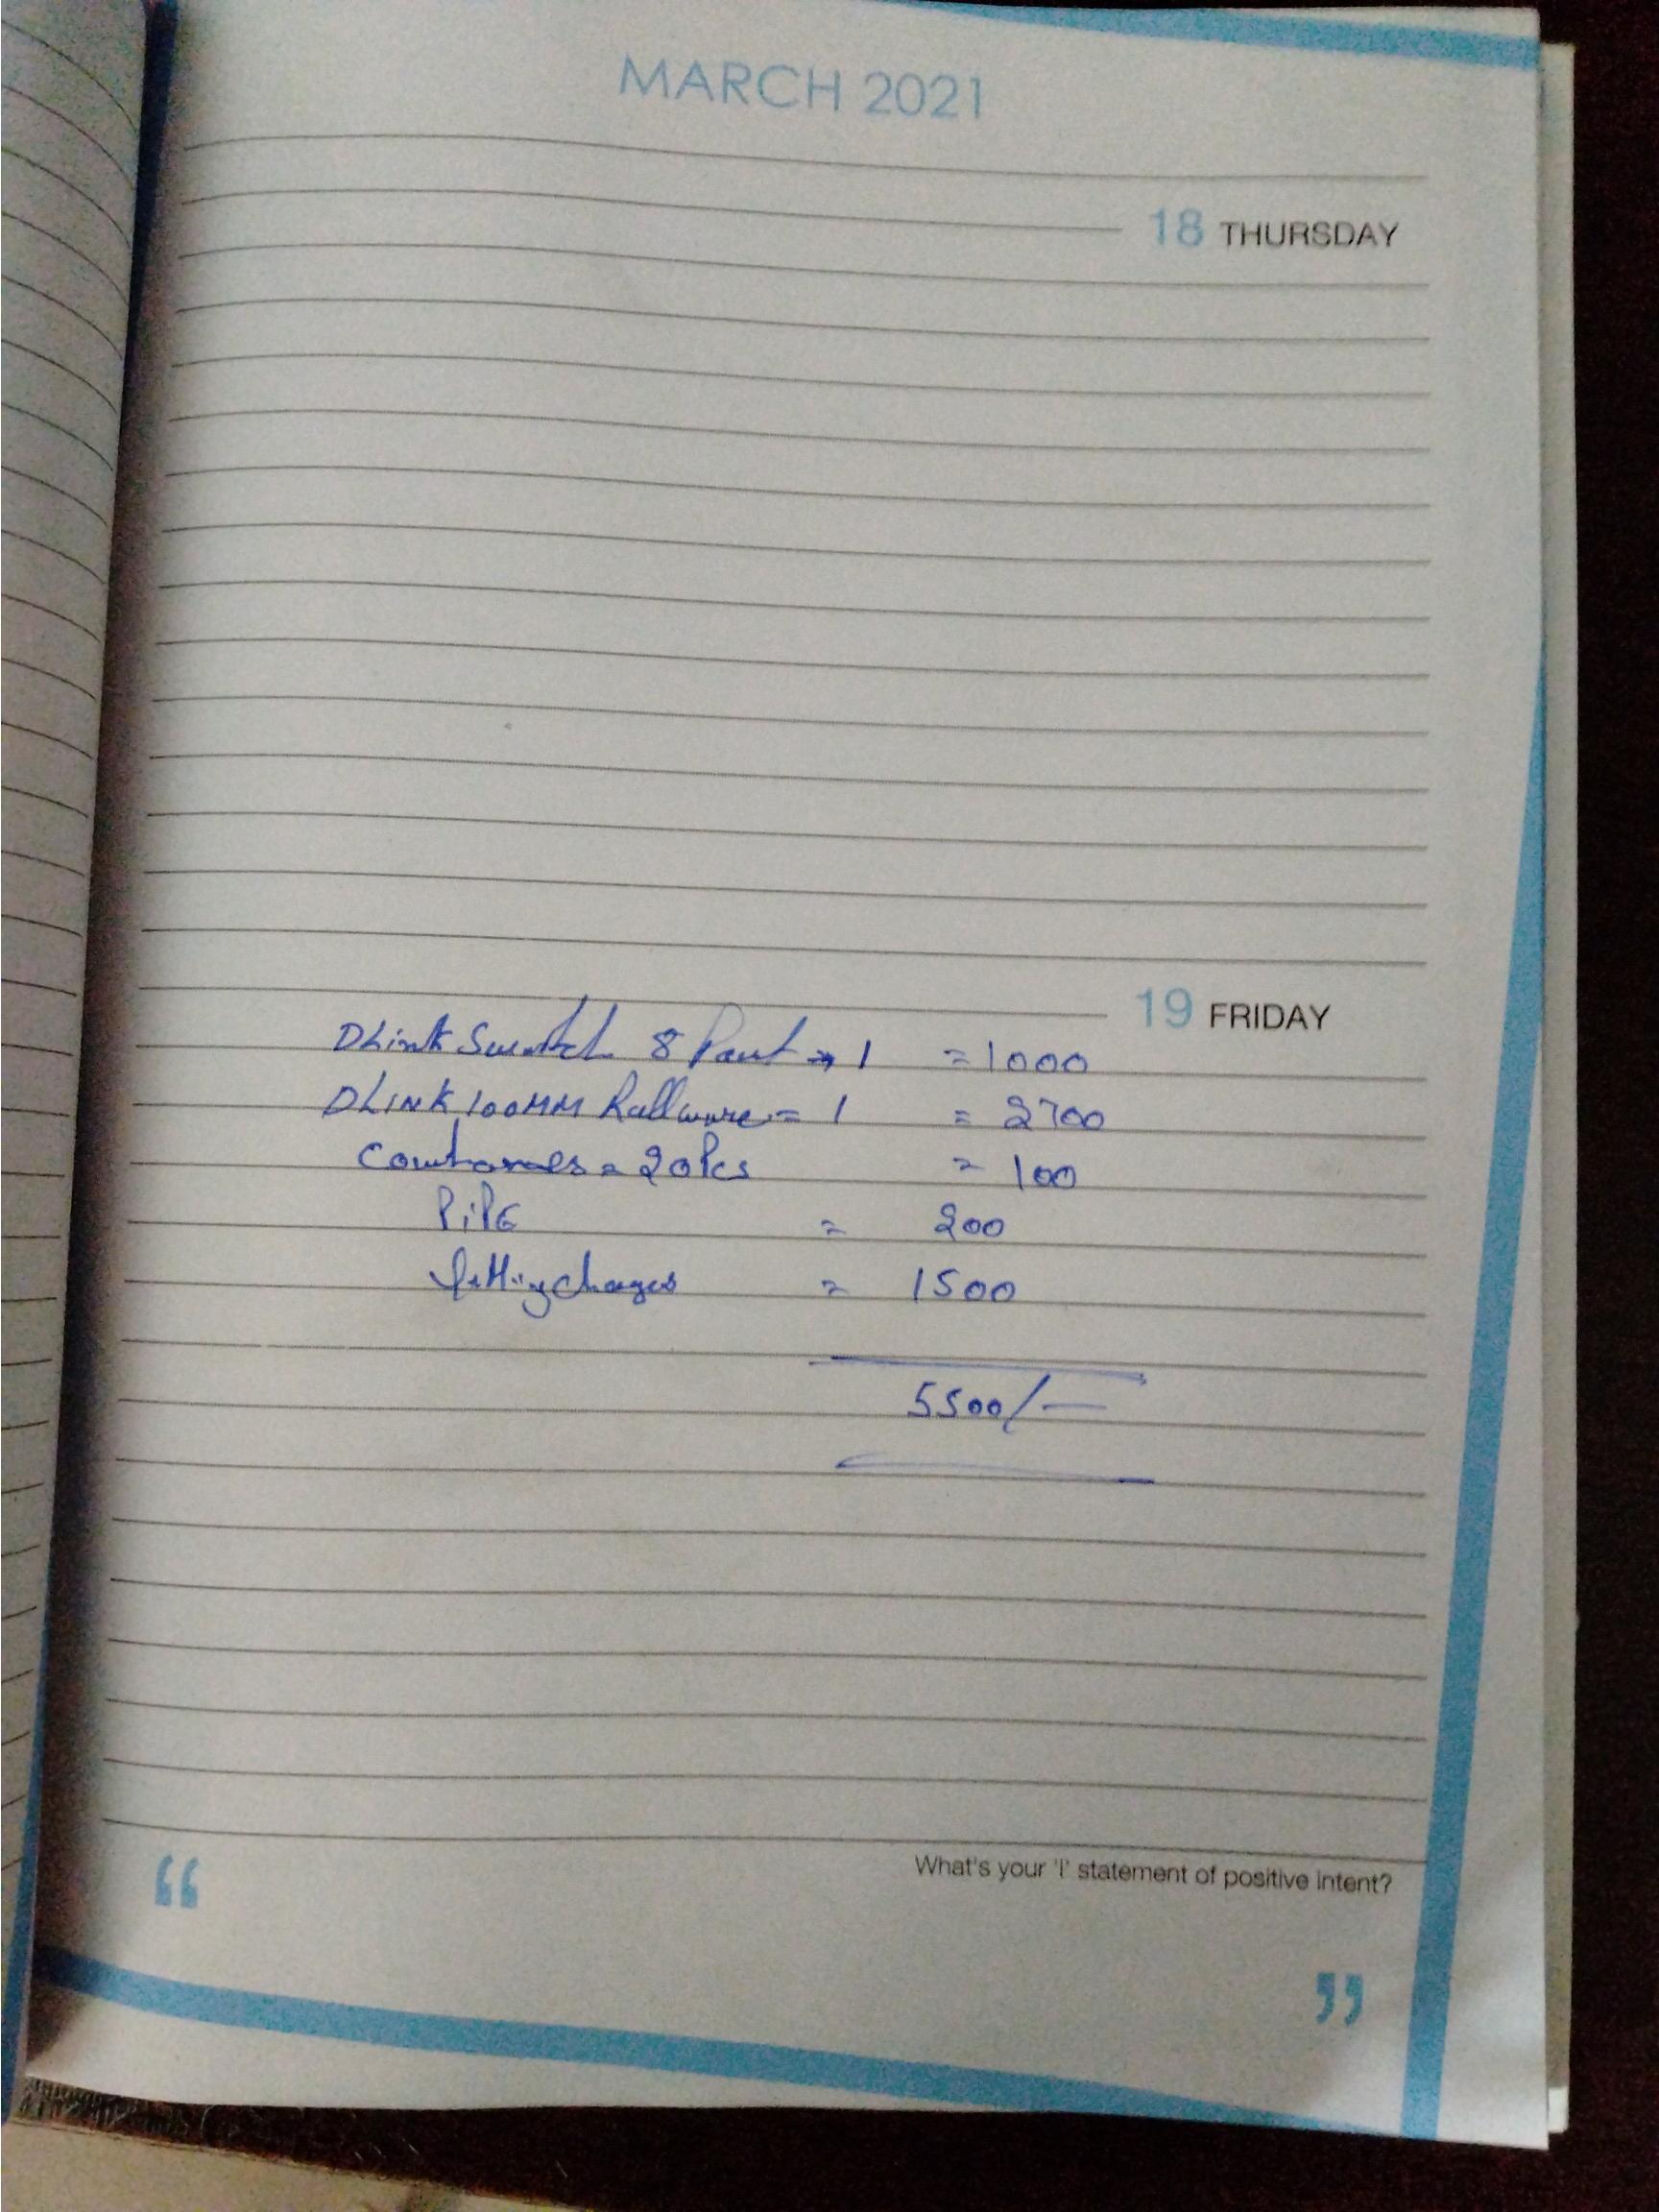 MARCH 2021
18 THURSDAY
19 FRIDAY
DLink Switch 8 Port → 1 = 1000
DLINK 100MM Rollwire = 1 = 2700
= 20Pcs = 100
PiPE = 200
fitting charges = 1500
5500/-
What's your 'I' statement of positive intent?